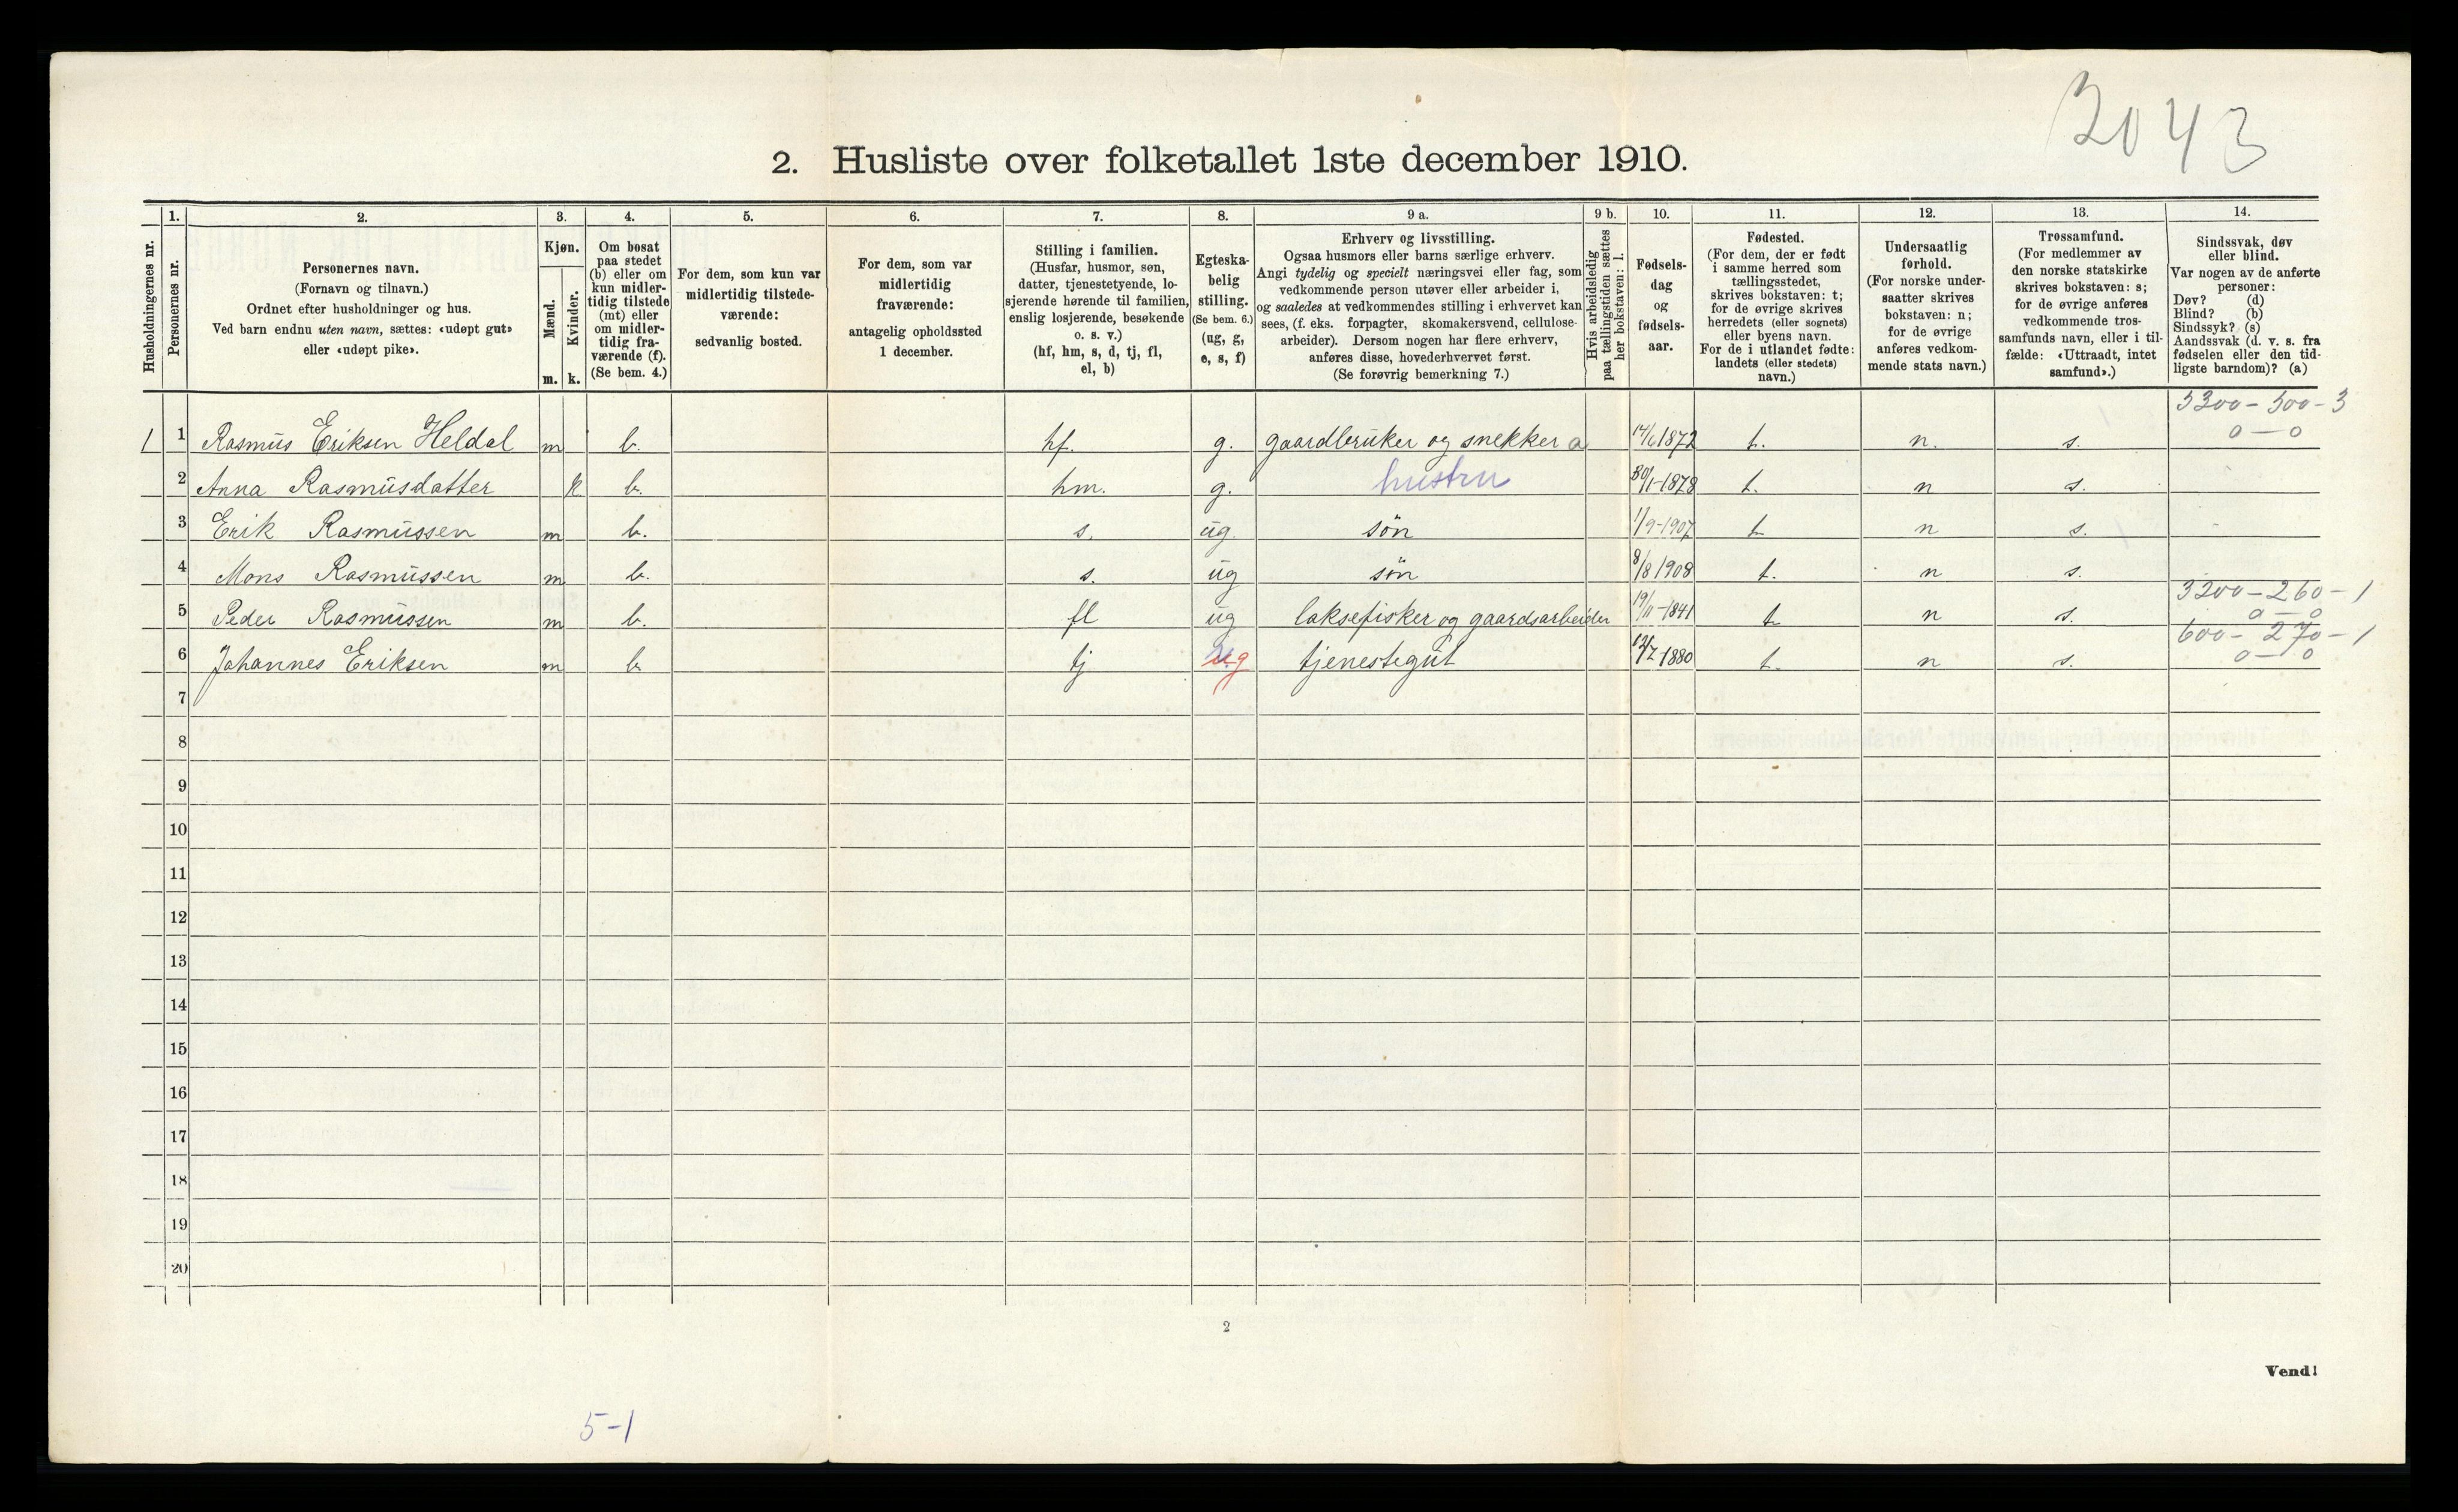 3043
2. Husliste over folketallet 1ste december 1910.
1. 2. 3. 4. 5. 6. 7. 8. 9 a. 9 b. 10. 11. 12. 13. 14.
Husholdningernes nr.
Personernes nr.
Personernes navn.
(Fornavn og tilnavn.)
Ordnet efter husholdninger og hus.
Ved barn endnu uten navn, sættes: «udøpt gut»
eller «udøpt pike».
Kjøn.
Mænd.
Kvinder.
m. k.
Om bosat
paa stedet
(b) eller om
kun midler-
tidig tilstede
(mt) eller
om midler-
tidig fra-
værende (f).
(Se bem. 4.)
For dem, som kun var
midlertidig tilstede-
værende:
sedvanlig bosted.
For dem, som var
midlertidig
fraværende:
antagelig opholdssted
1 december.
Stilling i familien.
(Husfar, husmor, søn,
datter, tjenestetyende, lo-
sjerende hørende til familien,
enslig losjerende, besøkende
o. s. v.)
(hf, hm, s, d, tj, fl,
el, b)
Egteska-
belig
stilling.
(Se bem. 6.)
(ug, g,
e, s, f)
Erhverv og livsstilling.
Ogsaa husmors eller barns særlige erhverv.
Angi tydelig og specielt næringsvei eller fag, som
vedkommende person utøver eller arbeider i,
og saaledes at vedkommendes stilling i erhvervet kan
sees, (f. eks. forpagter, skomakersvend, cellulose-
arbeider). Dersom nogen har flere erhverv,
anføres disse, hovederhvervet først.
(Se forøvrig bemerkning 7.)
Hvis arbeidsledig
paa tællingstiden sættes
her bokstaven: l.
Fødsels-
dag
og
fødsels-
aar.
Fødested.
(For dem, der er født
i samme herred som
tællingsstedet,
skrives bokstaven: t;
for de øvrige skrives
herredets (eller sognets)
eller byens navn.
For de i utlandet fødte:
landets (eller stedets)
navn.)
Undersaatlig
forhold.
(For norske under-
saatter skrives
bokstaven: n;
for de øvrige
anføres vedkom-
mende stats navn.)
Trossamfund.
(For medlemmer av
den norske statskirke
skrives bokstaven: s;
for de øvrige anføres
vedkommende tros-
samfunds navn, eller i til-
fælde: «Uttraadt, intet
samfund».)
Sindssvak, døv
eller blind.
Var nogen av de anførte
personer:
Døv? (d)
Blind? (b)
Sindssyk? (s)
Aandssvak (d. v. s. fra
fødselen eller den tid-
ligste barndom)? (a)
5300 - 500 - 3
1 1 Rasmus Eriksen Heldal m b. hf. g. gaardbruker og snekker a 14/6 1872 t. n. s. 0 - 0
2 Anna Rasmusdatter k b. hm. g. hustru 30/1-1878 t. n s.
3 Erik Rasmussen m b. s. ug. søn 1/9-1907 t n s. -
4 Mons Rasmussen m b. s. ug søn 8/8 1908 t. n s.
3200 - 260 - 1
5 Peder Rasmussen m b. fl ug laksefisker og gaardsarbeider 19/11-1841 t n s. 0 - 0
600 - 270 - 1
6 Johannes Eriksen m b tj ug tjenestegut 1880 t. n s. 0 - 0
7
8
9
10
11
12
13
14
15
16
17
18
19
20
2
Vend!
5-1